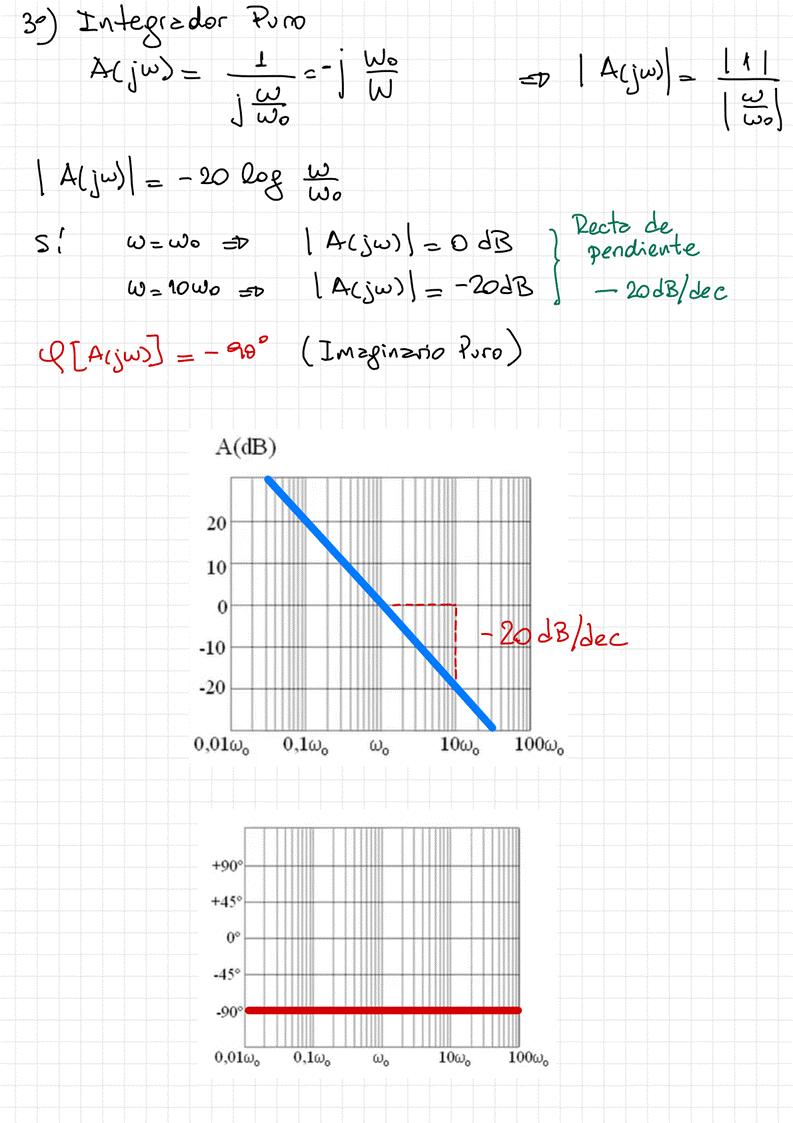 3º) Integrador Puro
A(jω) = 1 / (j ω/ω₀) = -j ω₀/ω ⇒ |A(jω)| = |1| / |ω/ω₀|
|A(jω)| = -20 log ω/ω₀
Si ω=ω₀ ⇒ |A(jω)| = 0 dB
ω=10ω₀ ⇒ |A(jω)| = -20dB
Recta de
pendiente
-20dB/dec
φ[A(jω)] = -90° (Imaginario Puro)
A(dB)
20
10
0
-10
-20
-20 dB/dec
0,01ω₀ 0,1ω₀ ω₀ 10ω₀ 100ω₀
+90°
+45°
0°
-45°
-90°
0,01ω₀ 0,1ω₀ ω₀ 10ω₀ 100ω₀